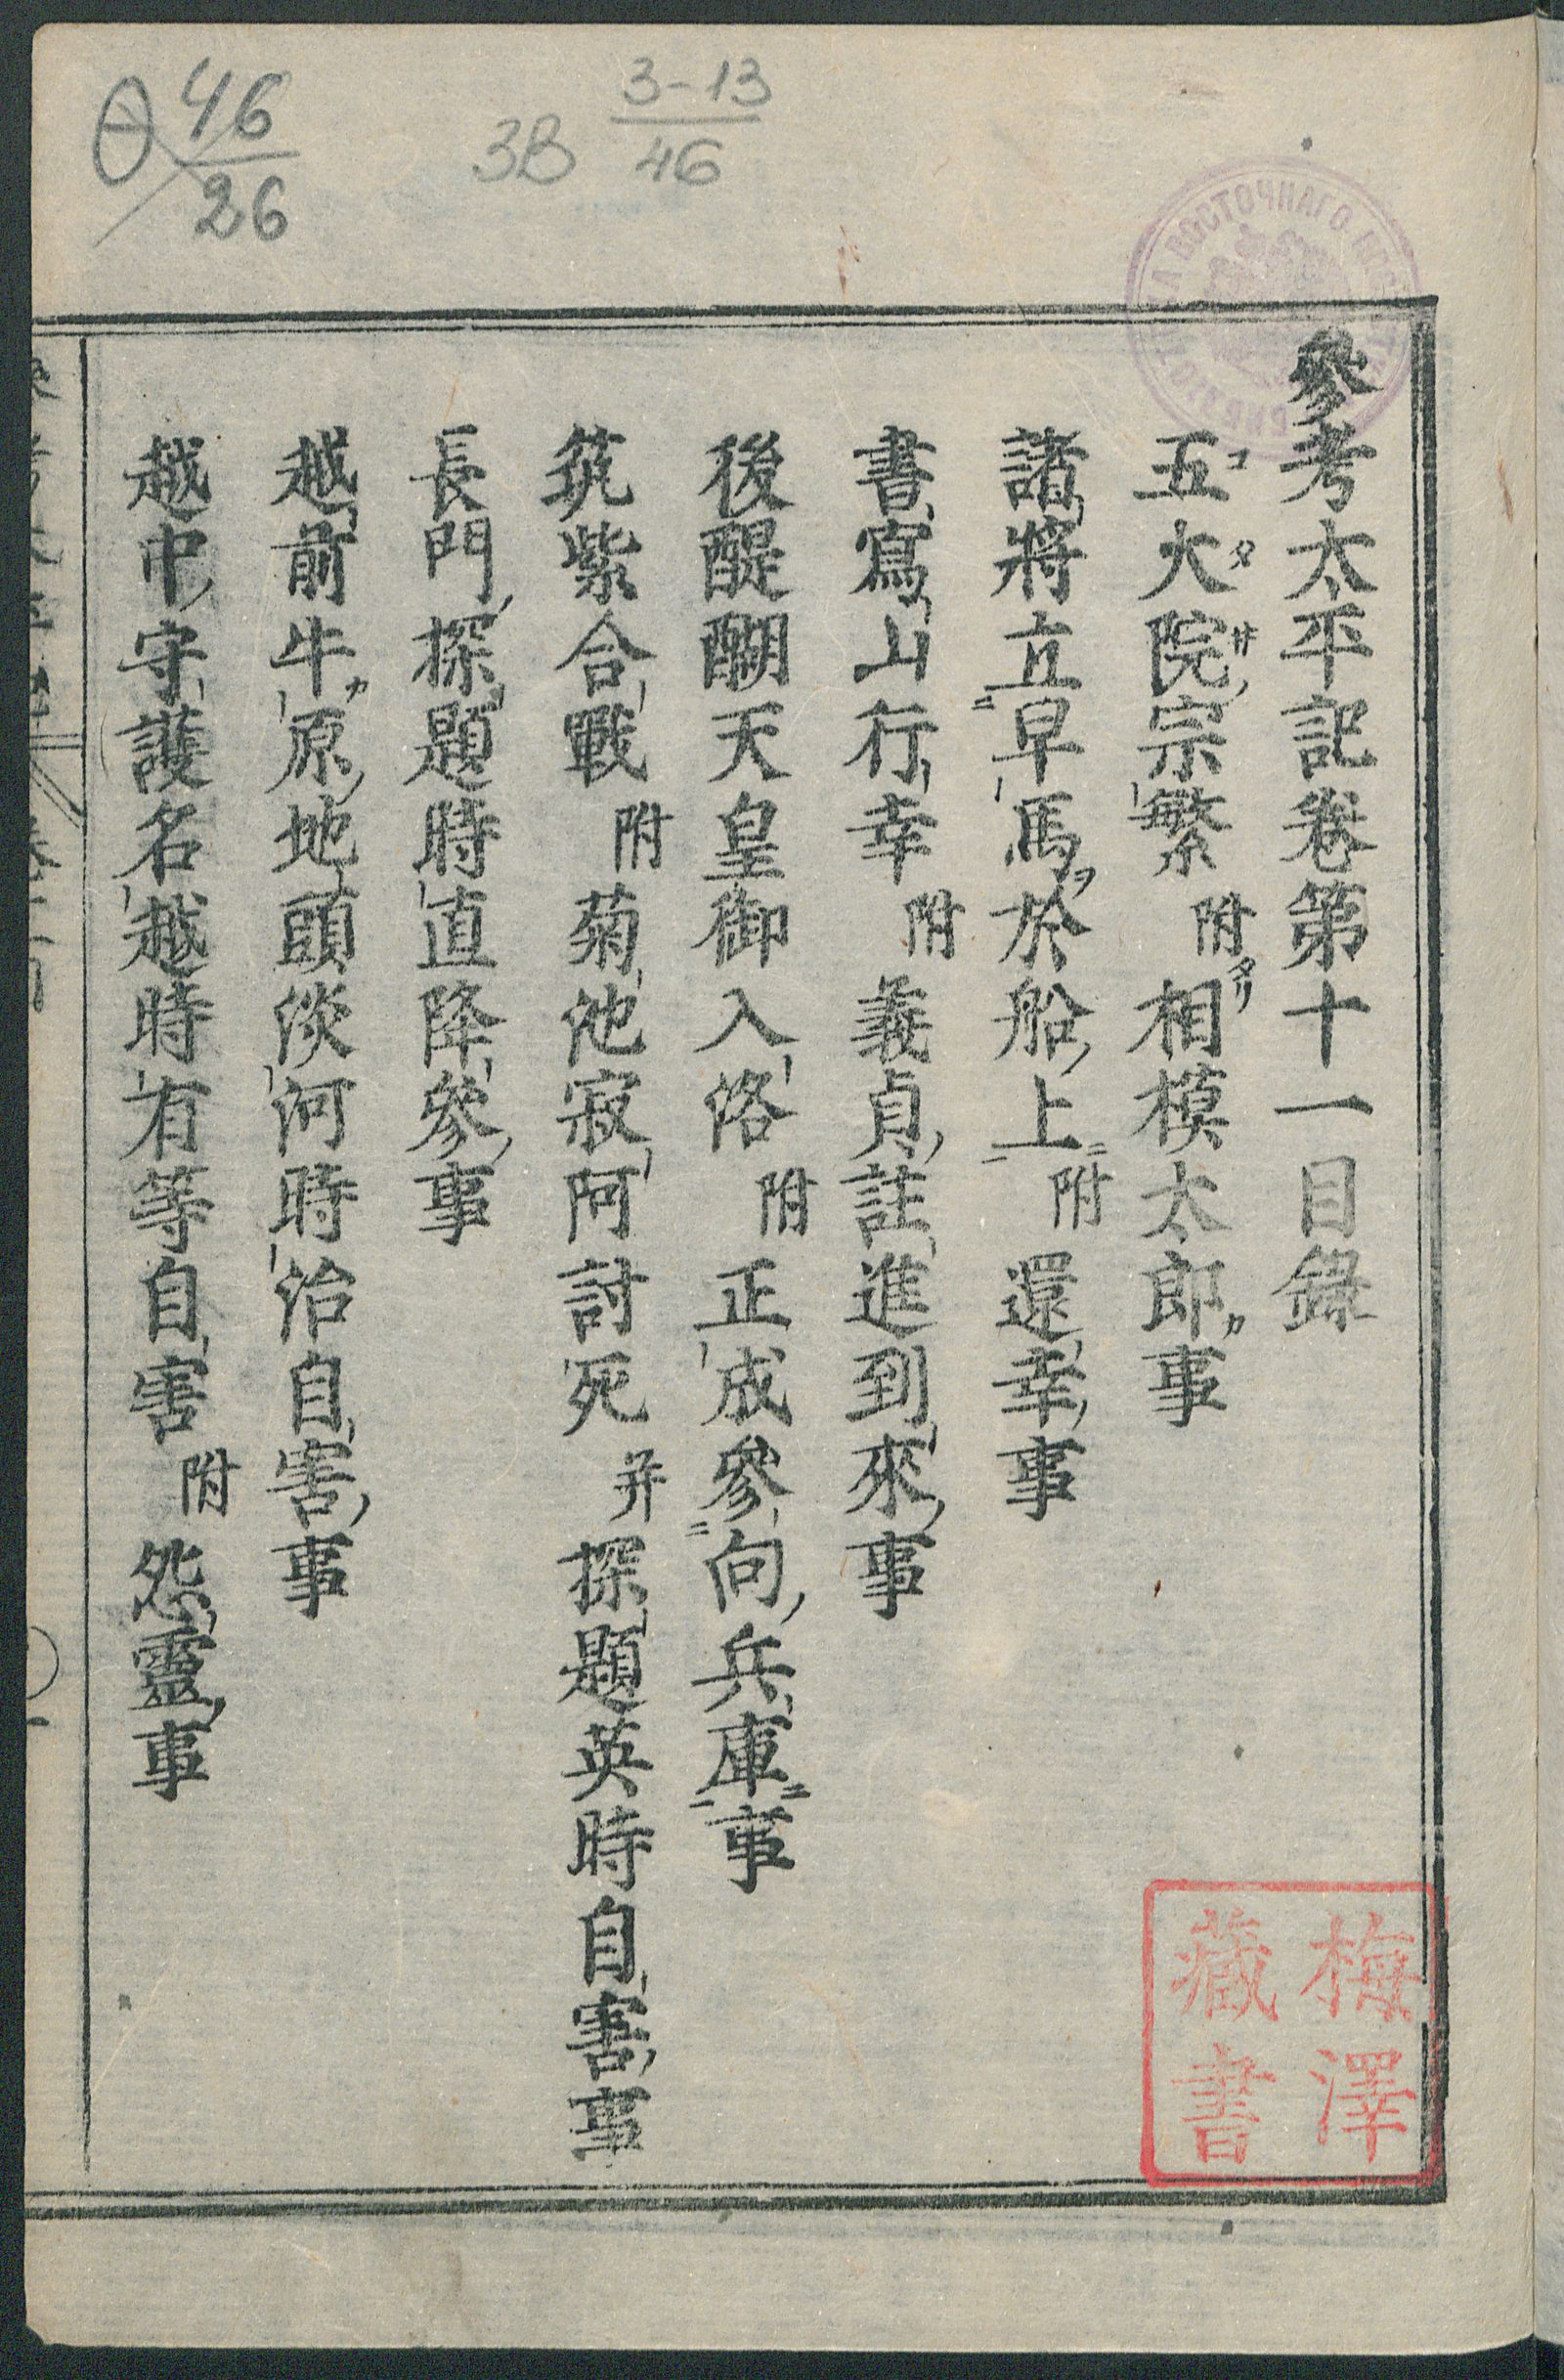 參考太平記卷第十一目錄
五大院宗繁 附 相模太郎事
諸將立早馬於船上 附 還幸事
書寫山行幸 附 義貞註進到來事
後醍醐天皇御入洛 附 正成參向兵庫事
筑紫合戰 附 菊池寂阿討死 并 探題英時自害事
長門探題時直降參事
越前牛原地頭淡河時治自害事
越中守護名越時有等自害 附 怨靈事
梅澤
藏書
46
26
3B 3-13
46
ВОСТОЧНАГО